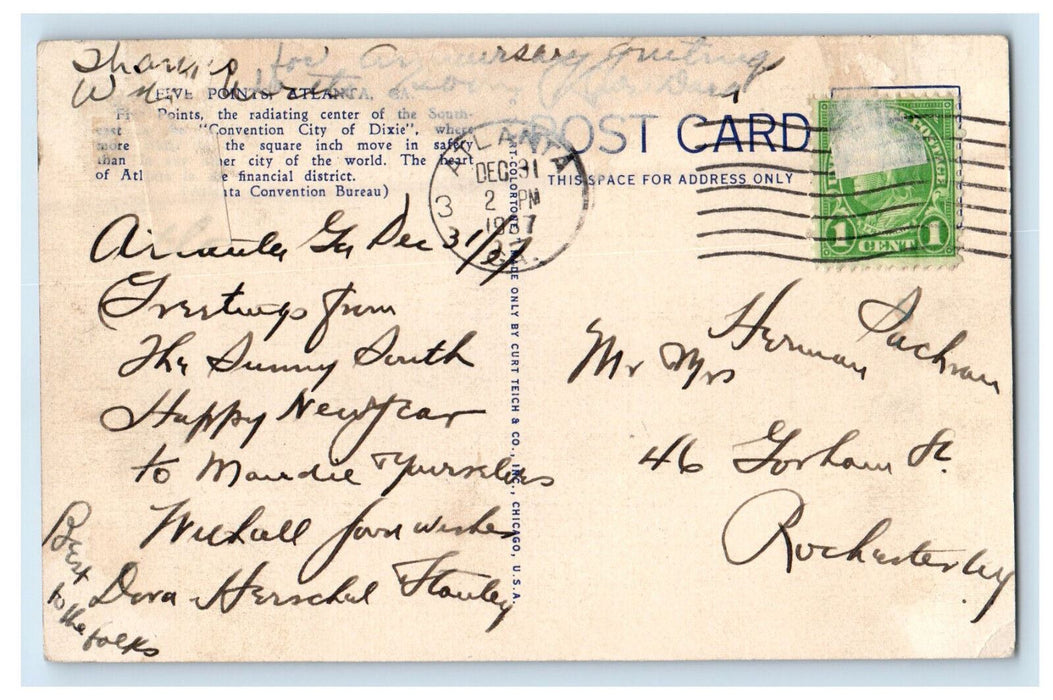 Thanks for Anniversary Greetings
FIVE POINTS, ATLANTA, GA.
Five Points, the radiating center of the South-
east "Convention City of Dixie", where
more the square inch move in safety
than other city of the world. The heart
of Atlanta is the financial district.
Convention Bureau)
Atlanta Ga Dec 31/37
Greetings from
The Sunny South
Happy New Year
to Maudie Yourselves
With all good wishes
Dora Herschel Stanley
Best
to the folks
ART-COLORTONE MADE ONLY BY CURT TEICH & CO., INC., CHICAGO, U.S.A.
POST CARD
THIS SPACE FOR ADDRESS ONLY
ATLANTA
DEC 31
2 PM
1937
GA.
3
POSTAGE
1 CENT 1
Mr Mrs Herman Sachran
46 Gorham St.
Rochester NY